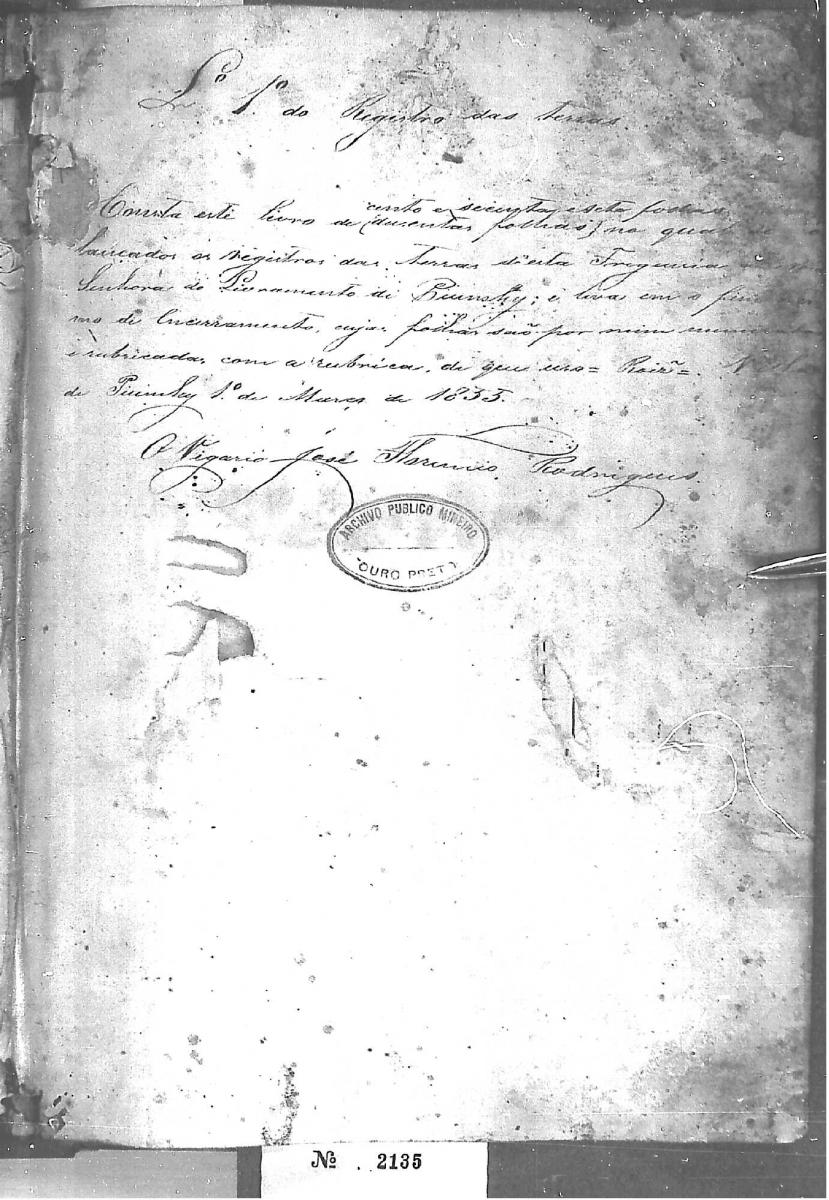 Lº 1º do Registro das terras
cento e secenta e sete folhas
Consta este livro de (duzentas folhas) no qual
lançados os registros das terras d'esta Freguezia
Senhora do Livramento de Piumhy; e leva em o fim
mo de Encerramento, cujas folhas são por mim numera
e rubricadas com a rubrica, de que uso = Roiz =
de Piumhy 1º de Março de 1855.
O Vigario José Florencio Rodrigues
ARCHIVO PUBLICO MINEIRO
OURO PRETO
Nº 2135